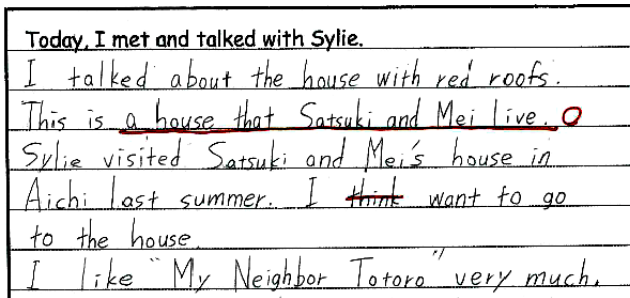 Today, I met and talked with Sylie.
I talked about the house with red roofs.
This is a house that Satsuki and Mei live.
Sylie visited Satsuki and Mei's house in
Aichi last summer. I think want to go
to the house.
I like "My Neighbor Totoro" very much.